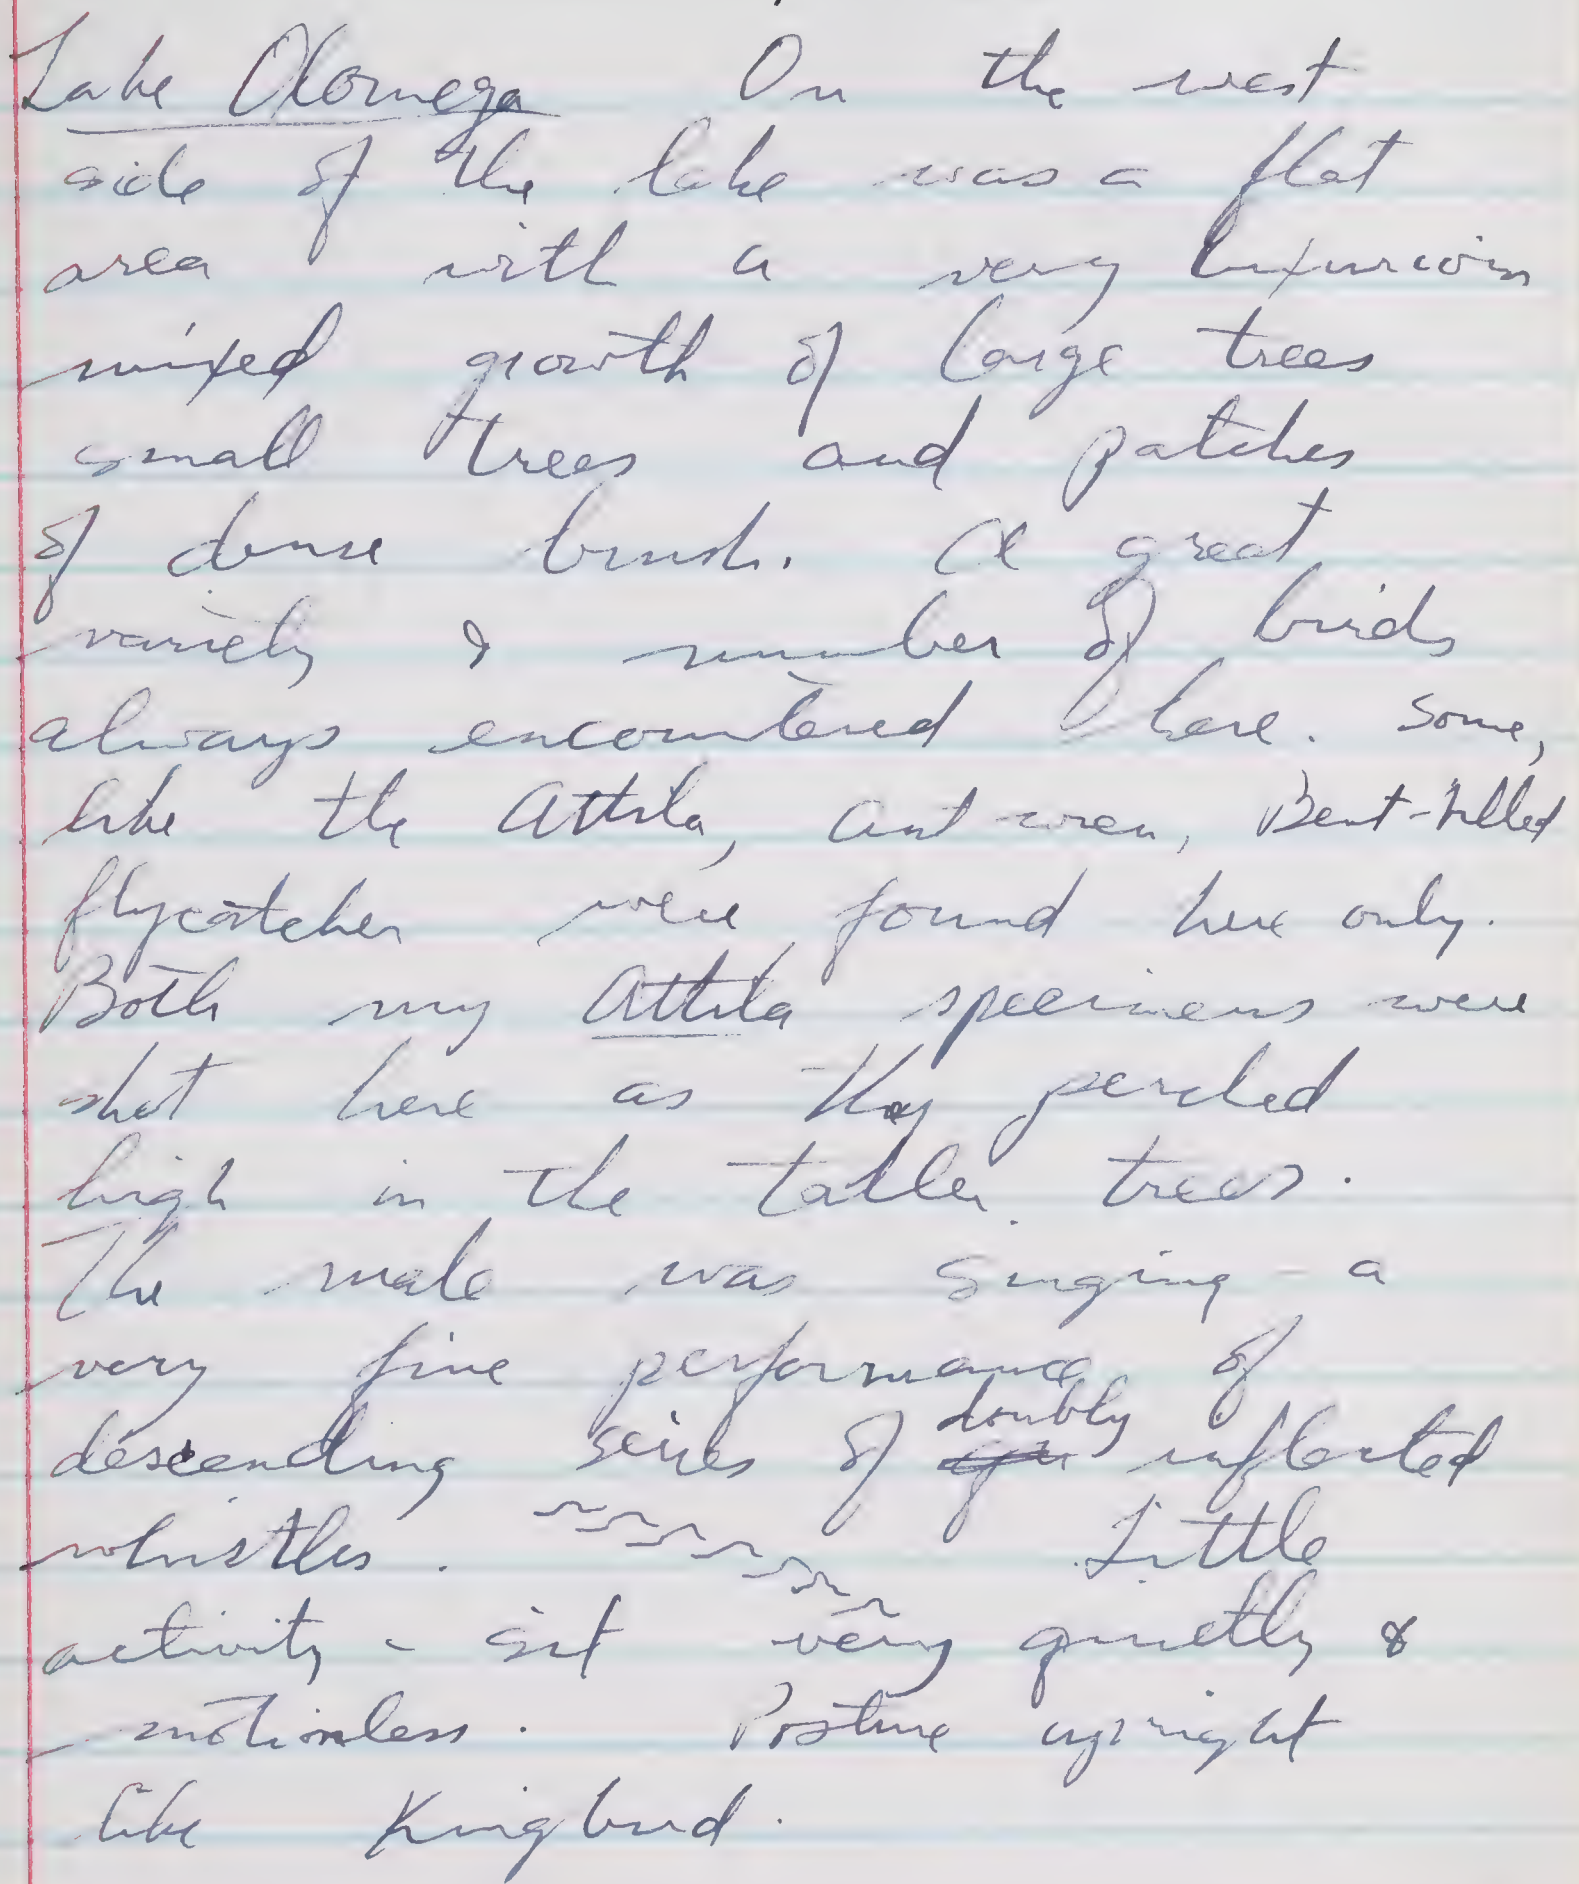 Lake Olomega On the west
side of the lake was a flat
area with a very luxurious
mixed growth of large trees
small trees and patches
of dense brush. A great
variety & number of birds
always encountered here. Some,
like the Attila, ant-wren, Bent-billed
flycatcher were found here only.
Both my Attila specimens were
shot here as they perched
high in the taller trees.
The male was singing - a
very fine performance of
descending series of doubly inflected
whistles. Little
activity - sit very quietly &
motionless. Posture upright
like Kingbird.